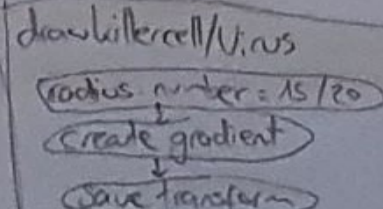 drawkillercell/Virus
radius number = 15/20
create gradient
save transform